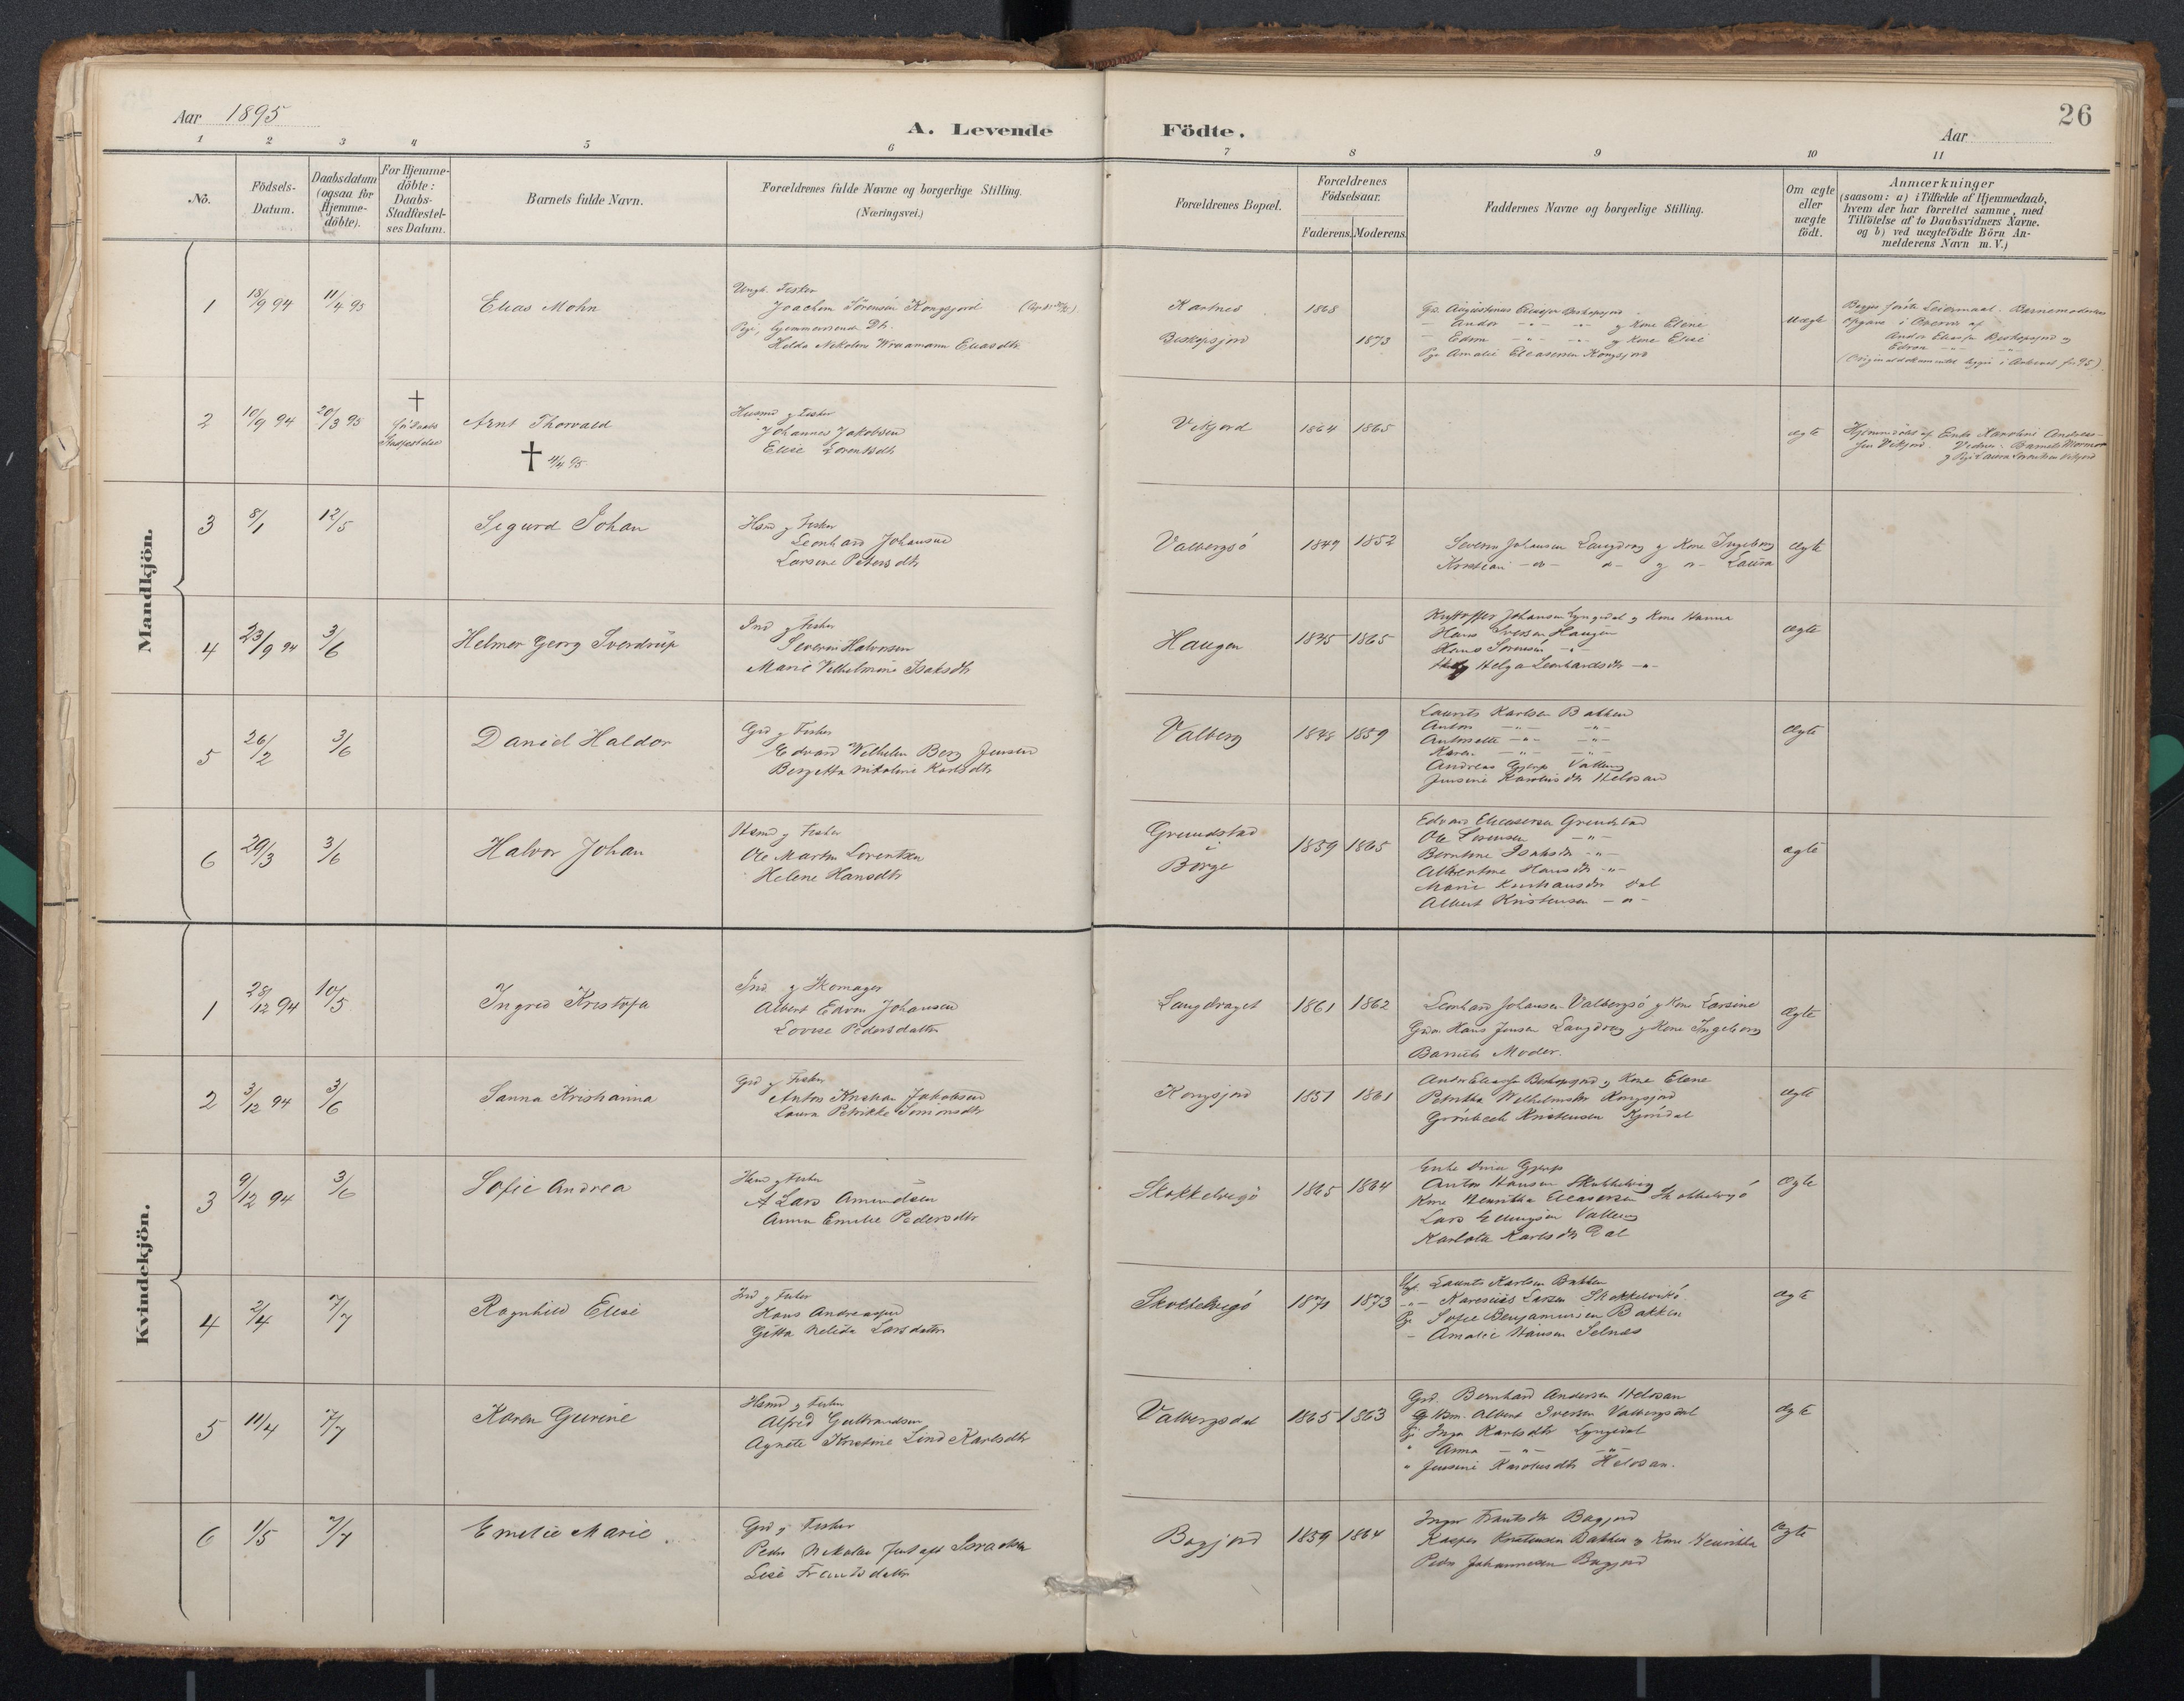 Aar 1895
A. Levende Födte.
Aar
26
1 2 3 4 5 6 7 8 9 10 11
No.
Födsels-
Datum.
Daabsdatum
(ogsaa for
Hjemme-
döbte).
For Hjemme-
döbte:
Daabs-
Stadfæstel-
ses Datum.
Barnets fulde Navn.
Forældrenes fulde Navne og borgerlige Stilling.
(Næringsvei.)
Forældrenes Bopæl.
Forældrenes
Födselsaar.
Faderens. Moderens.
Faddernes Navne og borgerlige Stilling.
Om ægte
eller
uægte
födt.
Anmærkninger
(saasom: a) i Tilfælde af Hjemmedaab,
hvem der har forrettet samme, med
Tilföielse af to Daabsvidners Navne.
og b) ved uægtefödte Börn An-
melderens Navn m. V.)
Mandkjön.
1 18/9 94 11/4 95 Elias Mohn
Ungk. Fisker
Joachim Sörensen Kongsjord
Pige, hjemmeværende Dtr.
Hilda Nikoline Eliasdtr
Kartnes 1868
Biskopsjord 1873
Andor -"- -"- g Kone Elene
Edvin -"- -"- g Kone Elise
Pge Amalie Eleasersen Kongsjord
uægte
Begges förste Leiermaal. Barnemoderens
Opgave i Overvær af
Andor Eliassen Biskopsjord og
Edvin -"- -"-
(Originaldokumentet ligger i Arkivet for 95)
2 10/9 94 20/3 95 †
för Daabs
Stadfæstelse
Arnt Thorvald
† 4/4 95
Husmd g Fisker
Johannes Jakobsen
Elise Lorentsdtr
Vikjord 1864 1865
ægte
Hjemmedöbt af Enke Karoline Andreas-
sen Vikjord. Vidner: Barnets Mormor
g Pige Laura Lorentsen Vikjord
3 8/1 12/5 Sigurd Johan
Hsmd g Fisker
Leonhard Johansen
Larsine Petersdtr
Valbergsö 1849 1852
Severin Johansen Langdrag g Kone Ingeborg
Kristian -"- -"- g -"- Laura
ægte
4 23/9 94 3/6 Helmer Georg Sverdrup
Ind g Fisker
Severin Halvorsen
Marie Vilhelmine Isaksdtr
Haugen 1835 1865
Kristoffer Johansen Lyngedal g Kone Hanna
Hans Iversen Haugen
Hans Sörensen -"-
Helga Leonhardsdtr -"-
ægte
5 26/2 3/6 Daniel Haldor
Grd g Fisker
Edvard Wilhelm Berg Jensen
Bergetta Nikoline Karlsdtr
Valberg 1848 1859
Laurits Karlsen Bakken
Anton -"- -"-
Antonette -"- -"-
Karen -"- -"-
Andreas Gjerp Valberg
Jensine Karolisdtr Helosan
ægte
6 29/3 3/6 Halvor Johan
Hsmd g Fisker
Ole Martin Lorentsen
Helene Hansdtr
Grundstad
i
Borge
1859 1865
Edvard Eleasersen Grundstad
Ole Sörensen -"-
Berntine Isaksdtr -"-
Albertine Hansdtr -"-
Marie Kristiansdtr Dal
Albert Kristensen -"-
ægte
Kvindekjön.
1 28/12 94 10/5 Ingrid Kristofa
Ind g Skomager
Albert Edvin Johansen
Lovise Pedersdatter
Langdraget 1861 1862
Leonhard Johansen Valbergsö g Kone Larsine
Grdm. Hans Jensen Langdrag g Kone Ingeborg
Barnets Moder.
Ægte
2 3/12 94 3/6 Sanna Kristianna
Grd g Fisker
Anton Kristian Jakobsen
Laura Petrikke Simonsdtr
Kongsjord 1851 1861
Andor Eliassen Biskopsjord g Kone Elene
Petritha Wilhelmsdtr Kongsjord
Grönbech Kristensen
ægte
3 9/12 94 3/6 Sofie Andrea
Hsmd g Fisker
Lars Amundsen
Anna Emilie Pedersdtr
Skokkelvigö 1865 1864
Enke Gjerp
Anton Hansen Skokkelvig
Kone Henritha Eleasersen Skokkelvigö
Lars Ellingsen Valberg
Karlotte Karlsdtr Dal
Ægte
4 2/4 7/7 Ragnhild Elise
Ind g Fisker
Hans Andreassen
Gitta Nelida Larsdatter
Skokkelvigö 1870 1873
Ugk. Laurits Karlsen Bakken
-"- Karesius Larsen Skokkelvikö
Pge Sofie Benjaminsen Bakken
- Amalie Hansen Selnes
ægte
5 11/4 7/7 Karen Gurine
Hsmd g Fisker
Alfred Gulbrandsen
Agnete Kristine Lind Karlsdtr
Valbergsdal 1865 1863
Grd. Bernhard Andersen Helosan
Hsm. Albert Iversen Valbergsdal
Pge Inga Karlsdtr Lyngedal
" Anna -"- -"-
" Jensine Karolusdtr Helosan.
ægte
6 1/5 7/7 Emilie Marie
Grd g Fisker
Peder Nikolai Israelsen
Lise Frantsdatter
Bagjord 1859 1864
Inger Frantsdtr Bagjord
Kasper Kristensen Bakken g Kone Henritha
Peder Johannessen Bagjord
ægte